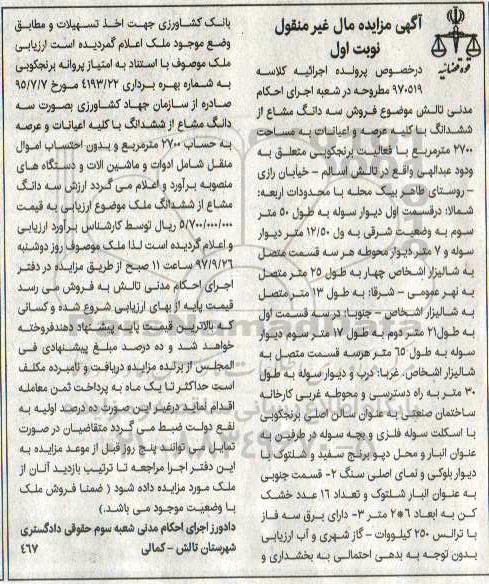 آگهی مزایده مال غیر منقول
نوبت اول
قوه قضائیه
درخصوص پرونده اجرائیه کلاسه
۹۷۰۵۱۹ مطروحه در شعبه اجرای احکام
مدنی تالش موضوع فروش سه دانگ مشاع از
ششدانگ با کلیه عرصه و اعیانات به مساحت
۲۷۰۰ مترمربع با فعالیت برنجکوبی متعلق به
ودود عبدالهی واقع در تالش اسالم – خیابان رازی
– روستای طاهر بیک محله با محدودات اربعه:
شمالا: درقسمت اول دیوار سوله به طول ۵۰ متر
سوم به وضعیت شرقی به ول ۱۲/۵۰ متر دیوار
سوله و ۷ متر دیوار محوطه هر سه قسمت متصل
به شالیزار اشخاص چهار به طول ۲۵ متر متصل
به نهر عمومی – شرقا: به طول ۱۳ متر متصل
به شالیزار اشخاص – جنوبا: در سه قسمت اول
به طول۲۱ متر دوم به طول ۱۷ متر سوم دیوار
سوله به طول ۶۵ متر هرسه قسمت متصل به
شالیزار اشخاص. غربا: درب و دیوار سوله به طول
۳۰ متر به راه دسترسی و محوطه غربی کارخانه
ساختمان صنعتی به عنوان سالن اصلی برنجکوبی
با اسکلت سوله فلزی و بچه سوله در طرفین به
عنوان انبار و محل دپو برنج سفید و شلتوک با
دیوار بلوکی و نمای اصلی سنگ ۲- قسمت جنوبی
به عنوان انبار شلتوک و تعداد ۱۶ عدد خشک
کن به ابعاد ۶*۲ متر ۳- دارای برق سه فاز
با ترانس ۲۵۰ کیلووات – گاز شهری و آب ارزیابی
بدون توجه به بدهی احتمالی به بخشداری و
بانک کشاورزی جهت اخذ تسهیلات و مطابق
وضع موجود ملک اعلام گمردیده است ارزیابی
ملک موصوف با استناد به امتیاز پروانه برنجکوبی
به شماره بهره برداری ۴۱۹۳/۲۲ مورخ ۹۵/۷/۷
صادره از سازمان جهاد کشاورزی بصورت سه
دانگ مشاع از ششدانگ با کلیه اعیانات و عرصه
به حساب ۲۷۰۰ مترمربع و بدون احتساب اموال
منقل شامل ادوات و ماشین الات و دستگاه های
منصوبه برآورد و اعلام می گردد ارزش سه دانگ
مشاع از ششدانگ ملک موضوع ارزیابی به قیمت
۵/۷۰۰/۰۰۰/۰۰۰ ریال توسط کارشناس برآورد ارزیابی
و اعلام گردیده است لذا ملک موصوف روز دوشنبه
۹۷/۹/۲۶ ساعت ۱۱ صبح از طریق مزایده در دفتر
اجرای احکام مدنی تالش به فروش می رسد
قیمت پایه از بهای ارزیابی شروع شده و کسانی
که بالاترین قیمت پایه پیشنهاد دهندفروخته
خواهد شد و ده درصد مبلغ پیشنهادی فی
المجلس از برنده مزایده دریافت و نامبرده مکلف
است حداکثر تا یک ماه به پرداخت ثمن معامله
اقدام نماید درغیر این صورت ده درصد اولیه به
نفع دولت ضبط می گردد متقاضیان در صورت
تمایل می توانند پنج روز قبل از موعد مزایده به
این دفتر اجرا مراجعه تا ترتیب بازدید آنان از
ملک مورد مزایده داده شود ( ضمنا فروش ملک
با وضعیت موجود می باشد.)
دادورز اجرای احکام مدنی شعبه سوم حقوقی دادگستری
شهرستان تالش – کمالی
۴۶۷